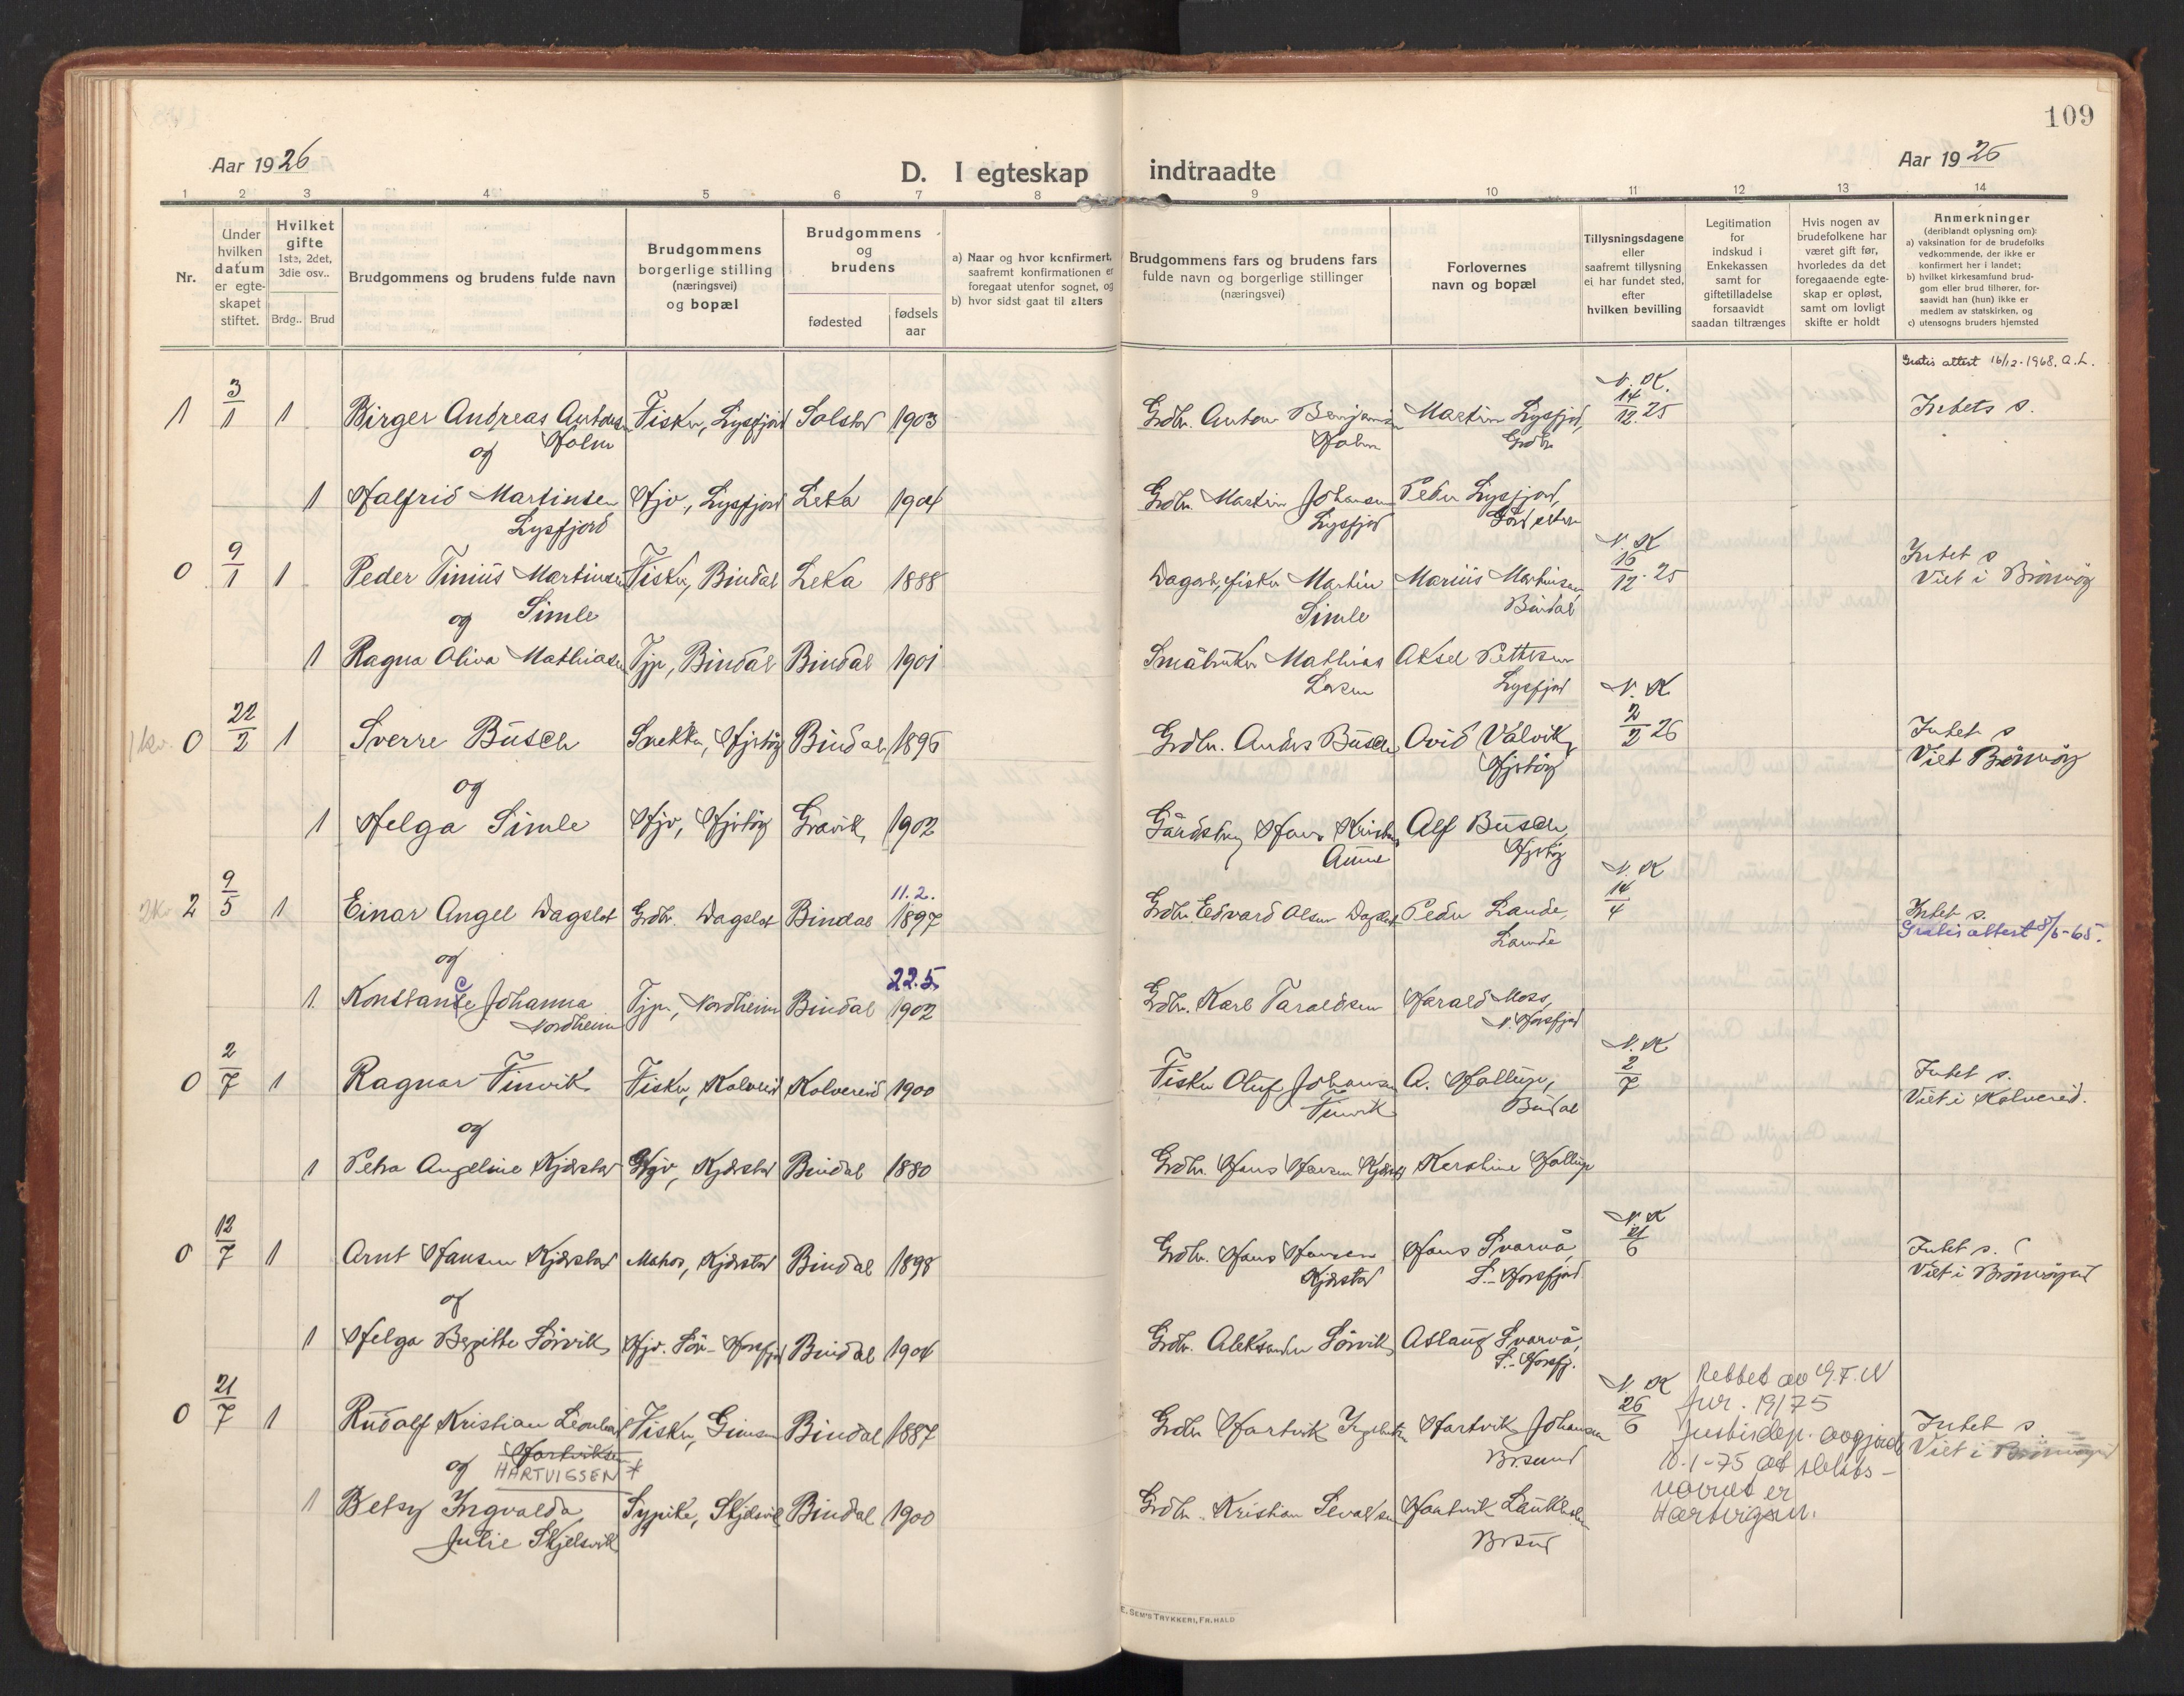 109
Aar 1926
Aar 1926
D. I egteskap indtraadte
1 2 3 4 5 6 7 8 9 10 11 12 13 14
Nr.
Under hvilken datum er egteskapet stiftet.
Hvilket gifte 1ste, 2det, 3die osv..
Brdg.. Brud
Brudgommens og brudens fulde navn
Brudgommens borgerlige stilling (næringsvei) og bopæl
Brudgommens og brudens
fødested
fødsels aar
a) Naar og hvor konfirmert, saafremt konfirmationen er foregaat utenfor sognet, og
b) hvor sidst gaat til alters
Brudgommens fars og brudens fars fulde navn og borgerlige stillinger (næringsvei)
Forlovernes navn og bopæl
Tillysningsdagene eller saafremt tillysning ei har fundet sted, efter hvilken bevilling
Legitimation for indskud i Enkekassen samt for giftetilladelse forsaavidt saadan tiltrænges
Hvis nogen av brudefolkene har været gift før, hvorledes da det foregaaende egteskap er opløst, samt om lovligt skifte er holdt
Anmerkninger (deriblandt oplysning om):
a) vaksination for de brudefolks vedkommende, der ikke er konfirmert her i landet;
b) hvilket kirkesamfund brudgom eller brud tilhører, forsaavidt han (hun) ikke er medlem av statskirken, og
c) utensogns bruders hjemsted
Gratis attest 16/12-1968. A.L.
1 3/1 1 Birger Andreas Antonsen Fisker, Lysfjord Solstad 1903 Grdbr. Anton Benjaminsen Martin Lysfjord, N. K. 14/12.25 Intet s.
og Holm Holm Grdbr
1 Halfrid Martinsen Hjv., Lysfjord Leka 1904 Grdbr. Martin Johansen Peder Lysfjord,
Lysfjord Lysfjord
0 9/1 1 Peder Tinius Martinsen Fisker, Bindal Leka 1888 Dagarb, fisker Martin Marius Martinsen N. K 16/12.25 Intet s
og Simle Simle Bindal Viet i Brönnöy
1 Ragna Oliva Mathiasen Tjp, Bindal Bindal 1901 Småbruker Mathias Aksel Pettersen
Larsen Lysfjord
1kv. 0 22/2 1 Sverre Busch Snekker, Bindal 1896 Grdbr. Anders Busch Ovid Valvik N. K 2/2 26 Intet s
og Viet Brönnöy
1 Helga Simle Hjv, Gravik 1902 Hans Alf Busch
Aune
2kv 2 9/5 1 Einar Angel Dagslot Grdbr. Dagslot Bindal 11.2. 1897 Grdbr. Edvard Olsen Dagslot Peder Lande, N. K 14/4 Intet s.
og Lande Gratis attest 5/5-65.
1 Konstance Johanna Tjp, Nordheim Bindal 22.5. 1902 Grdbr. Karl Taraldsen Harald Moss,
Nordheim N. Horsfjord
0 2/7 1 Ragnar Finvik Fisker, Kolvereid Kolvereid 1900 Fisker Oluf Johansen A. N. K 2/7 Intet s.
og Finvik Bindal Viet i Kolvereid.
1 Petra Angeline Kjærstad Hjv, Kjærstad Bindal 1880 Grdbr. Hans Hansen Kjærstad
0 12/7 1 Arnt Hansen Kjærstad Matros, Kjærstad Bindal 1898 Grdbr. Hans Hansen Hans Svarvå N. K 21/6 Intet s.
og Kjærstad S.-Horsfjord Viet i Brönnöysund
1 Helga Bergitte Sörvik Hjv. Sör-Horsfjord Bindal 1904 Grdbr. Aleksander Sörvik Aslaug Svarvå,
S.-Horsfj.
0 21/7 1 Rudolf Kristian Leonhard Fisker, Bindal 1887 Grdbr Hartvik Hartvik Johansen N. K 26/6 Intet s.
og Hartviksen Brsund Viet i Brönnöysund
HARTVIGSSEN *
1 Betsy Ingvalda Sypike, Skjelsvik Bindal 1900 Grdbr. Kristian Sevalsen Hartvik
Julie Skjelsvik Brsund
Rettet av G.F.N
jur. 19/75
Justisdep. avgjorde
10-1-75 at slekts-
navnet er
Hartvigsen.
E. SEM'S TRYKKERI, FR.HALD